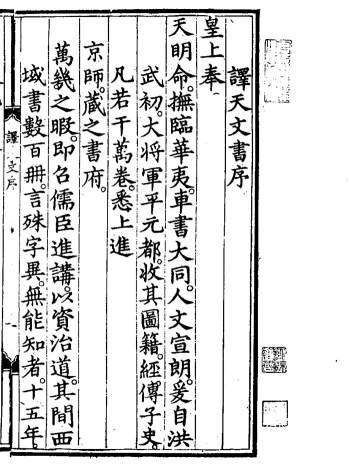 譯天文書序
皇上奉
天明命。撫臨華夷。車書大同。人文宣朗。爰自洪
武初。大将軍平元都。收其圖籍。經傳子史。
凡若干萬卷。悉上進
京師。藏之書府。
萬幾之暇。即召儒臣進講。以資治道。其間西
域書數百冊。言殊字異。無能知者。十五年。
譯文序